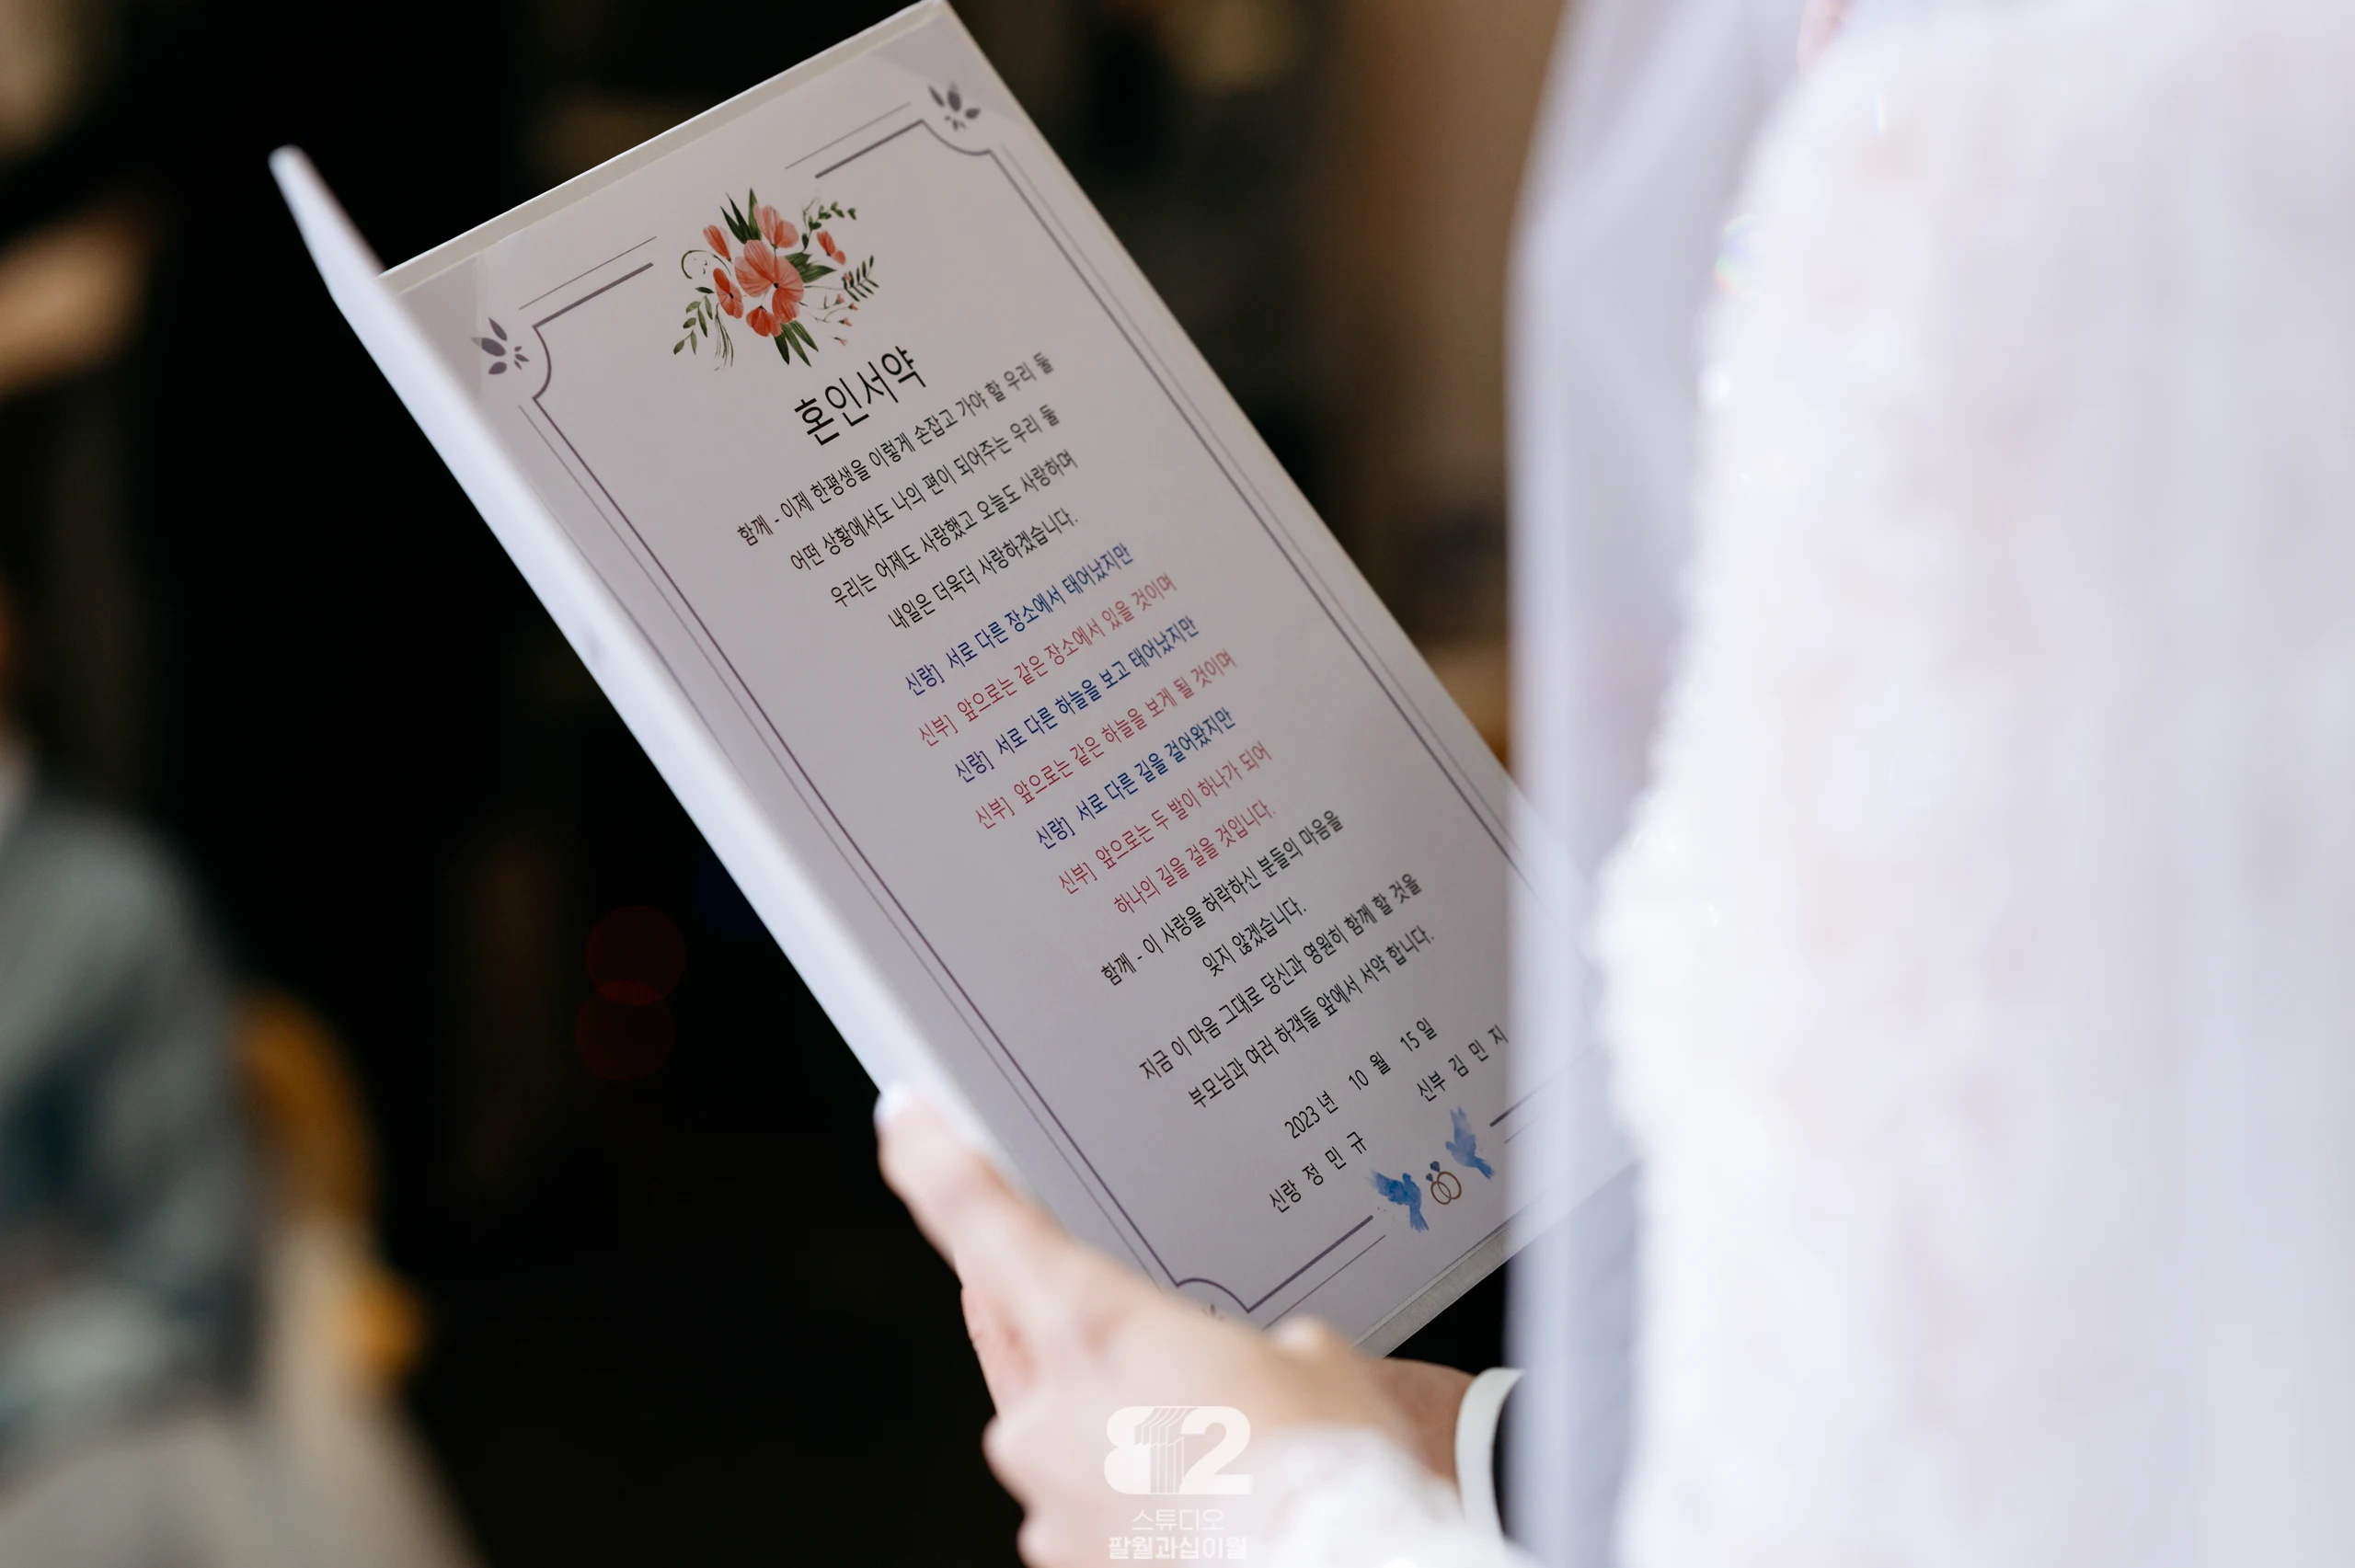 혼인서약
함께 - 이제 한평생을 이렇게 손잡고 가야 할 우리 둘
어떤 상황에서도 나의 편이 되어주는 우리 둘
우리는 어제도 사랑했고 오늘도 사랑하며
내일은 더욱더 사랑하겠습니다.
신랑] 서로 다른 장소에서 태어났지만
신부] 앞으로는 같은 장소에서 있을 것이며
신랑] 서로 다른 하늘을 보고 태어났지만
신부] 앞으로는 같은 하늘을 보게 될 것이며
신랑] 서로 다른 길을 걸어왔지만
신부] 앞으로는 두 발이 하나가 되어
하나의 길을 걸을 것입니다.
함께 - 이 사랑을 허락하신 분들의 마음을
잊지 않겠습니다.
지금 이 마음 그대로 당신과 영원히 함께 할 것을
부모님과 여러 하객들 앞에서 서약 합니다.
2023 년 10 월 15 일
신랑 정 민 규 신부 김 민 지
812
스튜디오
팔월과십이월